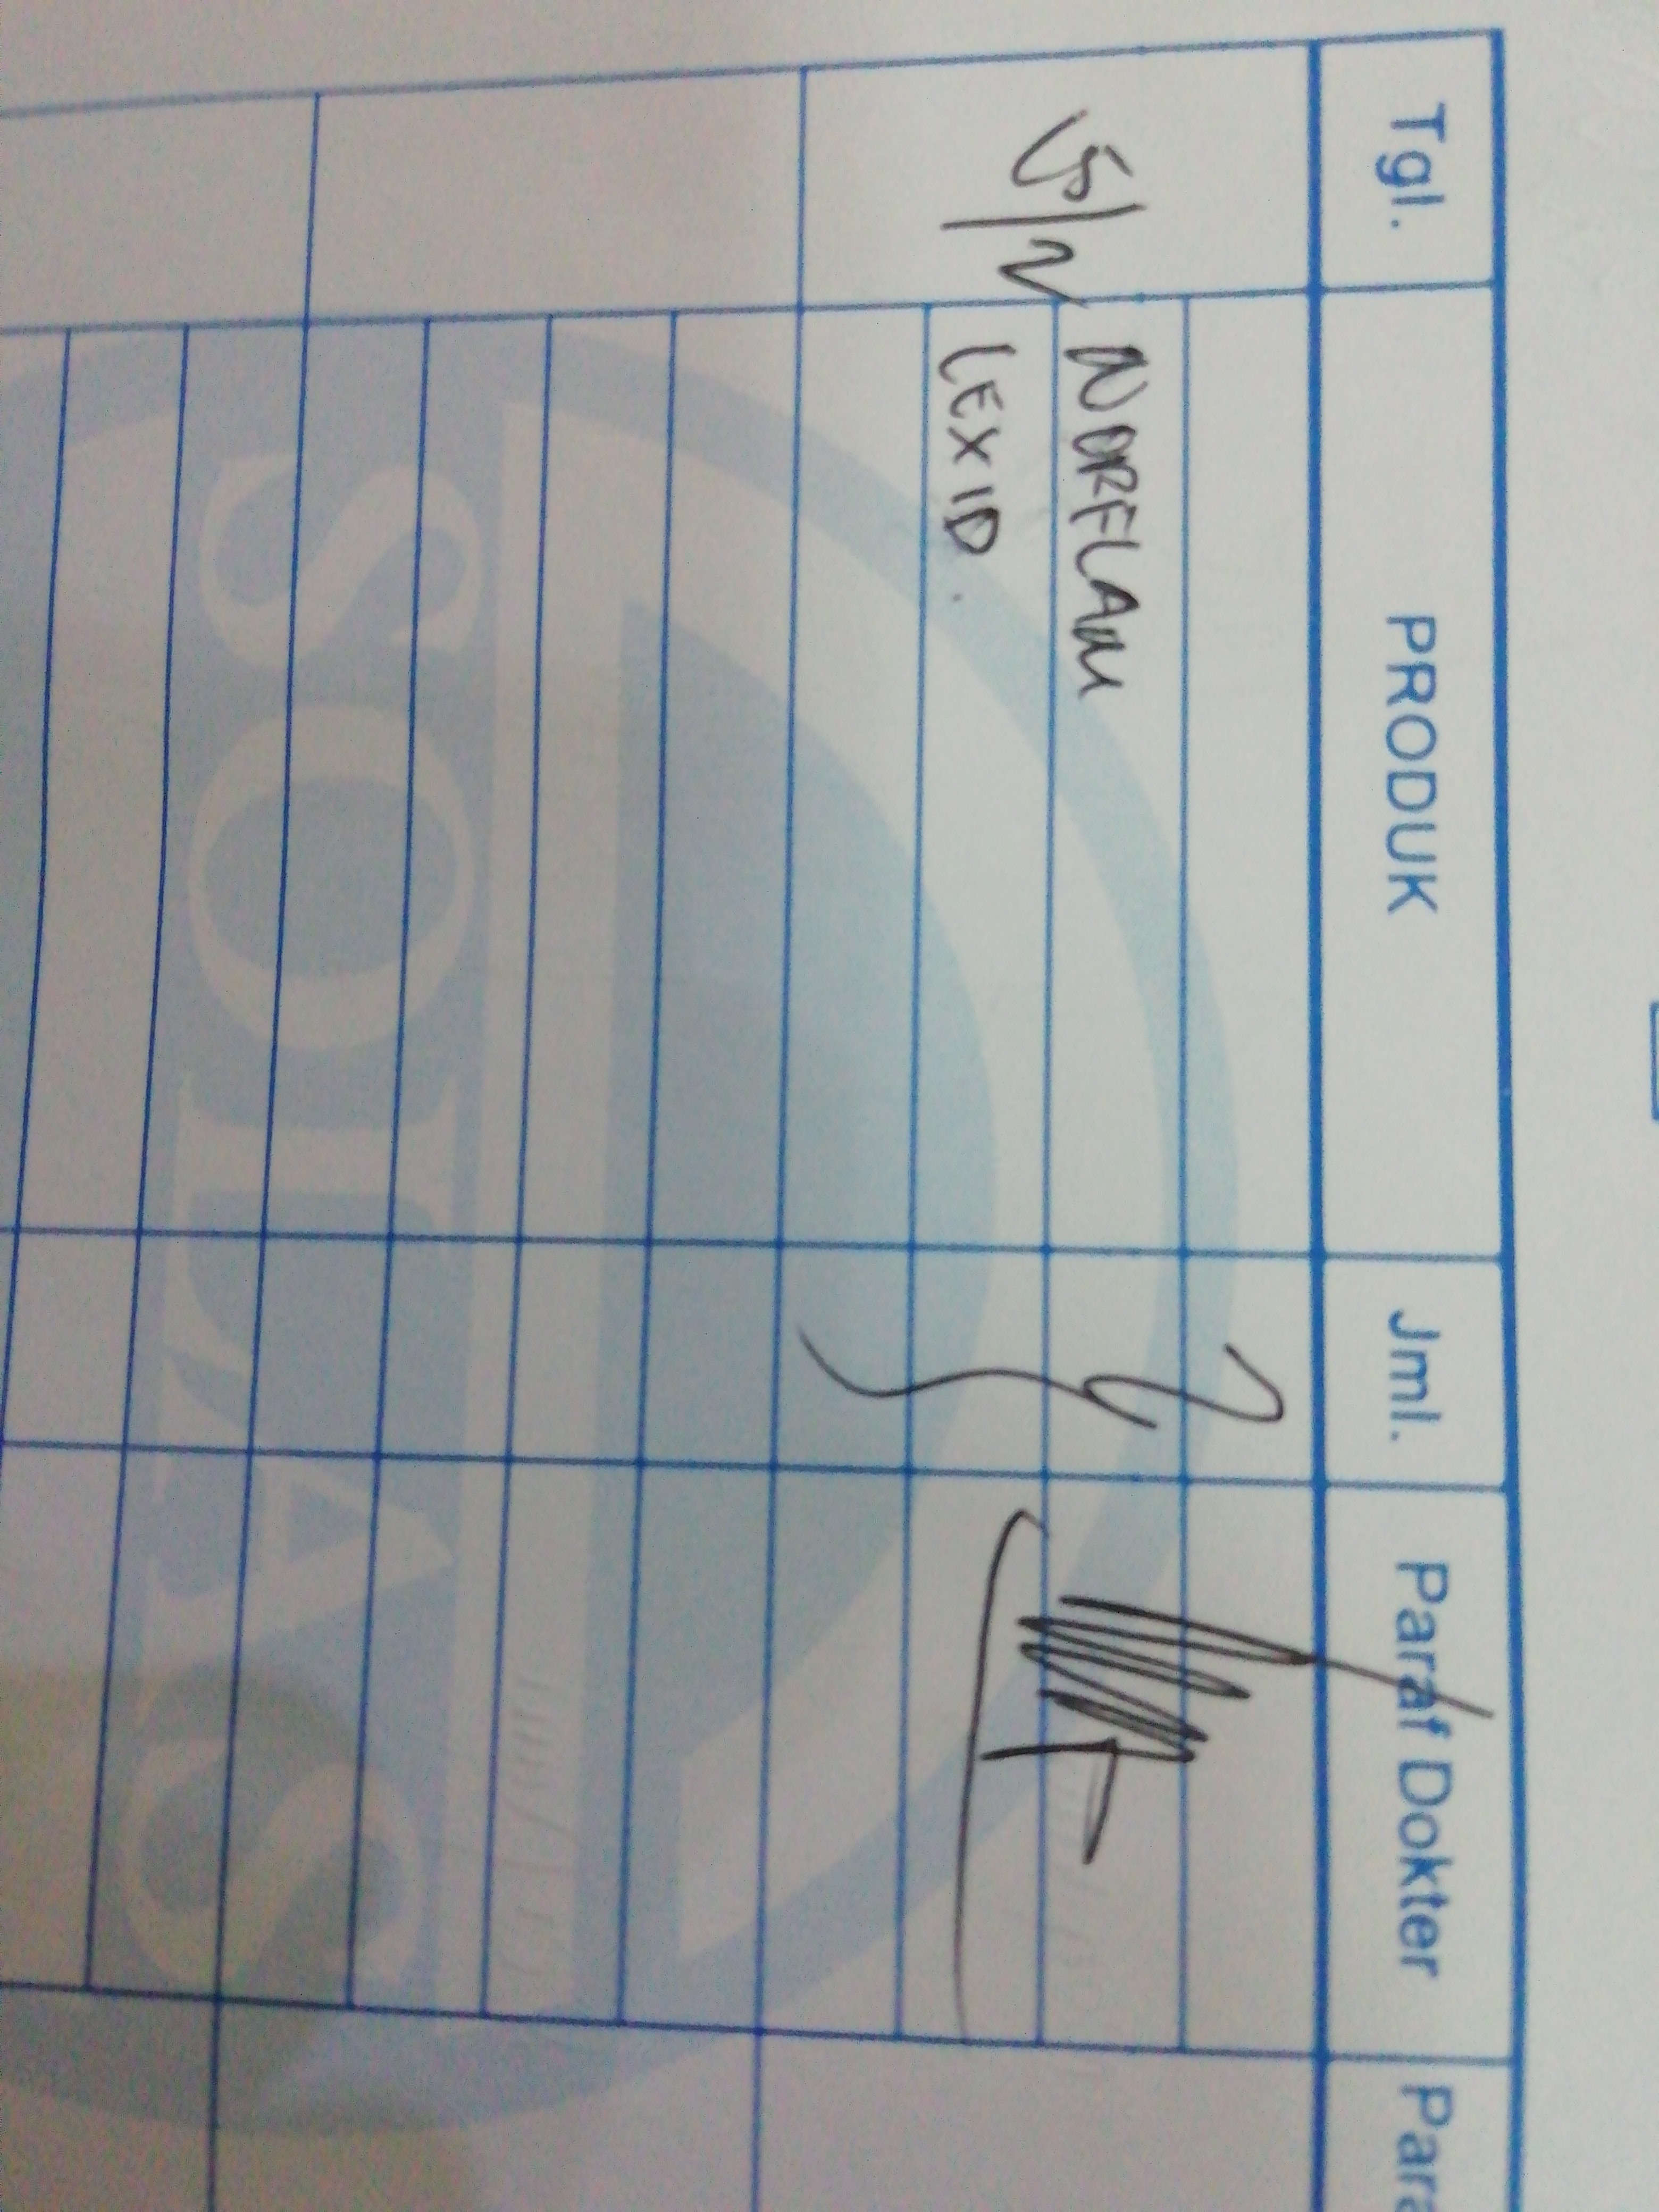 Tgl. PRODUK Jml. Paraf Dokter Para
15/2 NORFLAM
LEXID.
SOLAS